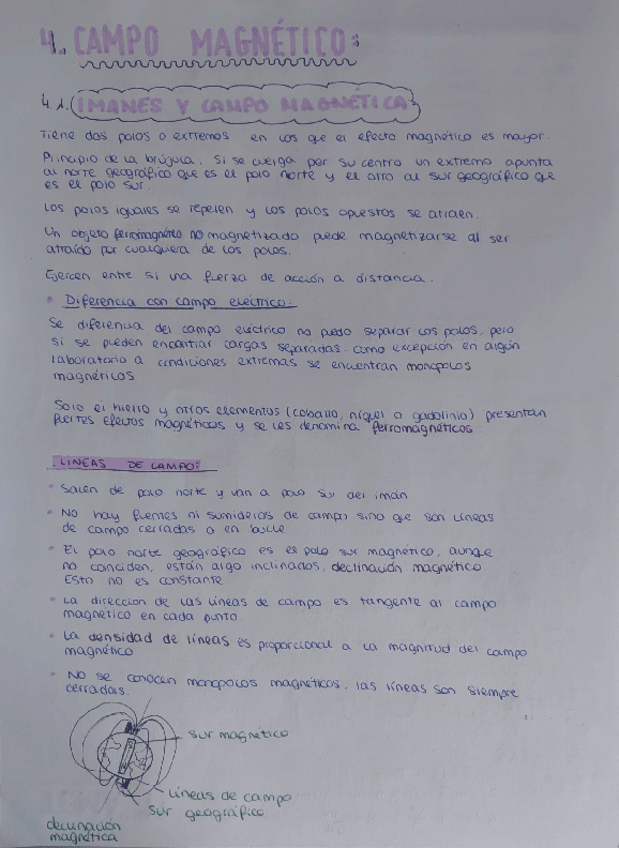 4. CAMPO MAGNÉTICO:
4.1. IMANES Y CAMPO MAGNÉTICA
Tiene dos polos o extremos en los que el efecto magnético es mayor.
Principio de la brújula: si se cuelga por su centro un extremo apunta
al norte geográfico que es el polo norte y el otro al sur geográfico que
es el polo sur.
Los polos iguales se repelen y los polos opuestos se atraen.
Un objeto ferromagnético no magnetizado puede magnetizarse al ser
atraído por cualquiera de los polos.
Ejercen entre sí una fuerza de acción a distancia.
• Diferencia con campo eléctrico:
Se diferencia del campo eléctrico no puedo separar los polos, pero
si se pueden encontrar cargas separadas. como excepción en algún
laboratorio a condiciones extremas se encuentran monopolos
magnéticos
Solo el hierro y otros elementos (cobalto, níquel o gadolinio) presentan
fuertes efectos magnéticos y se les denomina ferromagnéticos
LINEAS DE CAMPO:
• Salen de polo norte y van a polo sur del imán
• No hay fuentes ni sumideros de campo sino que son líneas
de campo cerradas o en bucle
• El polo norte geográfico es el polo sur magnético, aunque
no coinciden, están algo inclinados. declinación magnética
Esto no es constante
• La dirección de las líneas de campo es tangente al campo
magnético en cada punto.
• La densidad de líneas es proporcional a la magnitud del campo
magnético
• No se conocen monopolos magnéticos. las líneas son siempre
cerradas.
sur magnético
líneas de campo
sur geográfico
declinación
magnética